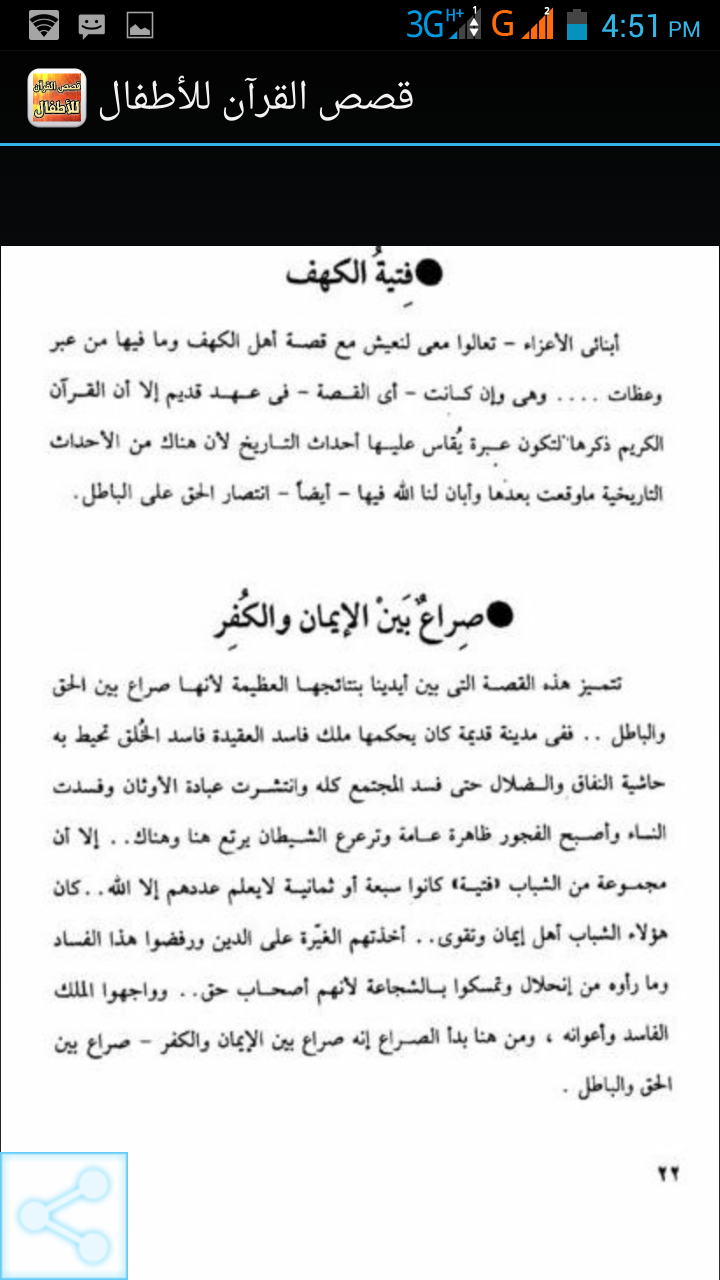 3G H+ 1 G 2 4:51 PM
قصص القرآن للأطفال
قصص القرآن للأطفال
فِتيةُ الكهف
أبنائى الأعزاء - تعالوا معى لنعيش مع قصة أهل الكهف وما فيها من عبر
وعظات .... وهى وإن كانت - أى القصة - فى عهد قديم إلا أن القرآن
الكريم ذكرها لتكون عبرة يُقاس عليها أحداث التاريخ لأن هناك من الأحداث
التاريخية ماوقعت بعدها وأبان لنا الله فيها - أيضاً - انتصار الحق على الباطل.
صِراعٌ بَينْ الإيمان والكُفِر
تتميز هذه القصة التى بين أيدينا بنتائجها العظيمة لأنها صراع بين الحق
والباطل .. ففى مدينة قديمة كان يحكمها ملك فاسد العقيدة فاسد الخُلق تحيط به
حاشية النفاق والضلال حتى فسد المجتمع كله وانتشرت عبادة الأوثان وفسدت
النساء وأصبح الفجور ظاهرة عامة وترعرع الشيطان يرتع هنا وهناك.. إلا أن
مجموعة من الشباب «فتية» كانوا سبعة أو ثمانية لايعلم عددهم إلا الله..كان
هؤلاء الشباب أهل إيمان وتقوى.. أخذتهم الغيّرة على الدين ورفضوا هذا الفساد
وما رأوه من إنحلال وتمسكوا بالشجاعة لأنهم أصحاب حق.. وواجهوا الملك
الفاسد وأعوانه ، ومن هنا بدأ الصراع إنه صراع بين الإيمان والكفر - صراع بين
الحق والباطل .
٢٢